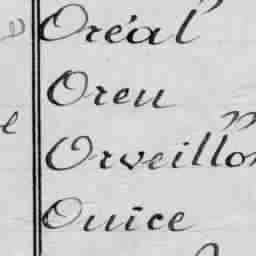 Oréal
Oreu
Orveillon
Ouice